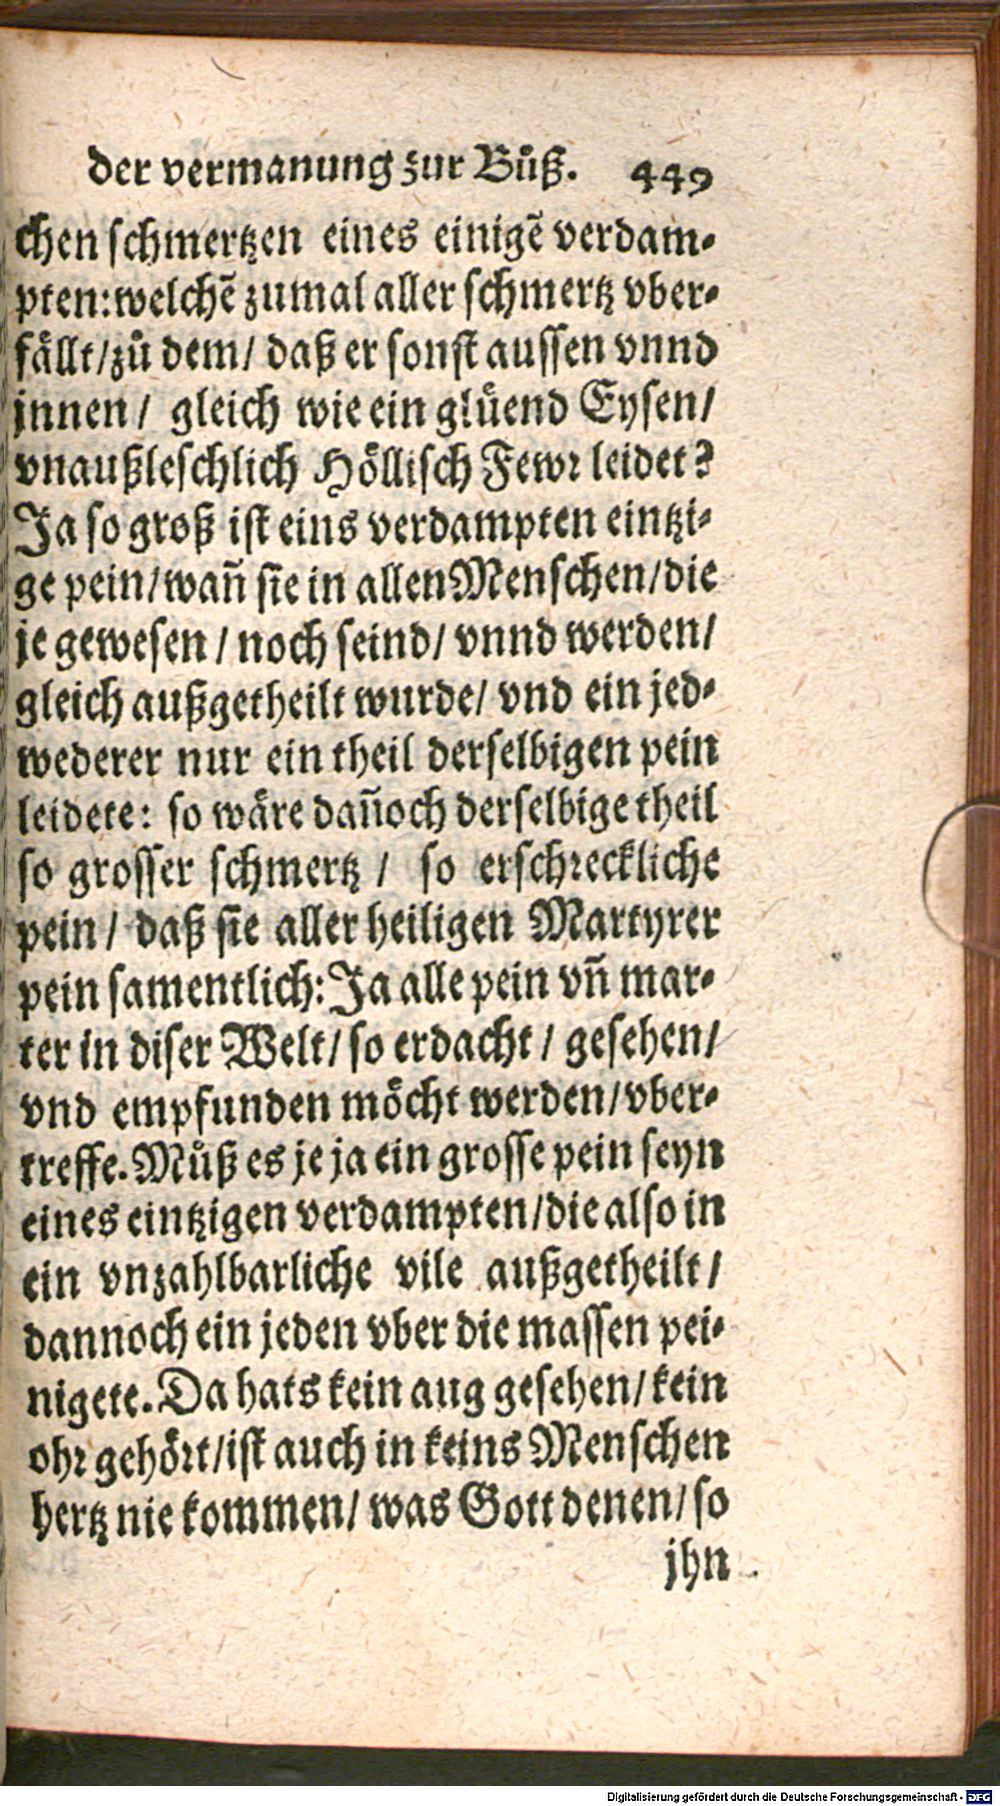 der vermanung zur Bůß. 449
chen schmertzen eines einigẽ verdam-
pten: welchẽ zumal aller schmertz vber-
fällt/ zů dem/ daß er sonst aussen vnnd
jnnen/ gleich wie ein glüend Eysen/
vnaußleschlich Höllisch Fewr leidet?
Ja so groß ist eins verdampten eintzi-
ge pein/ wañ sie in allen Menschen/ die
je gewesen/ noch seind/ vnnd werden/
gleich außgetheilt wurde/ vnd ein jed-
wederer nur ein theil derselbigen pein
leidete: so wäre dañoch derselbige theil
so grosser schmertz/ so erschreckliche
pein/ daß sie aller heiligen Martyrer
pein samentlich: Ja alle pein vñ mar-
ter in diser Welt/ so erdacht/ gesehen/
vnd empfunden möcht werden/ vber-
treffe. Můß es je ja ein grosse pein seyn
eines eintzigen verdampten/ die also in
ein vnzahlbarliche vile außgetheilt/
dannoch ein jeden vber die massen pei-
nigete. Da hats kein aug gesehen/ kein
ohr gehört/ ist auch in keins Menschen
hertz nie kommen/ was Gott denen/ so
jhn
Digitalisierung gefördert durch die Deutsche Forschungsgemeinschaft - DFG